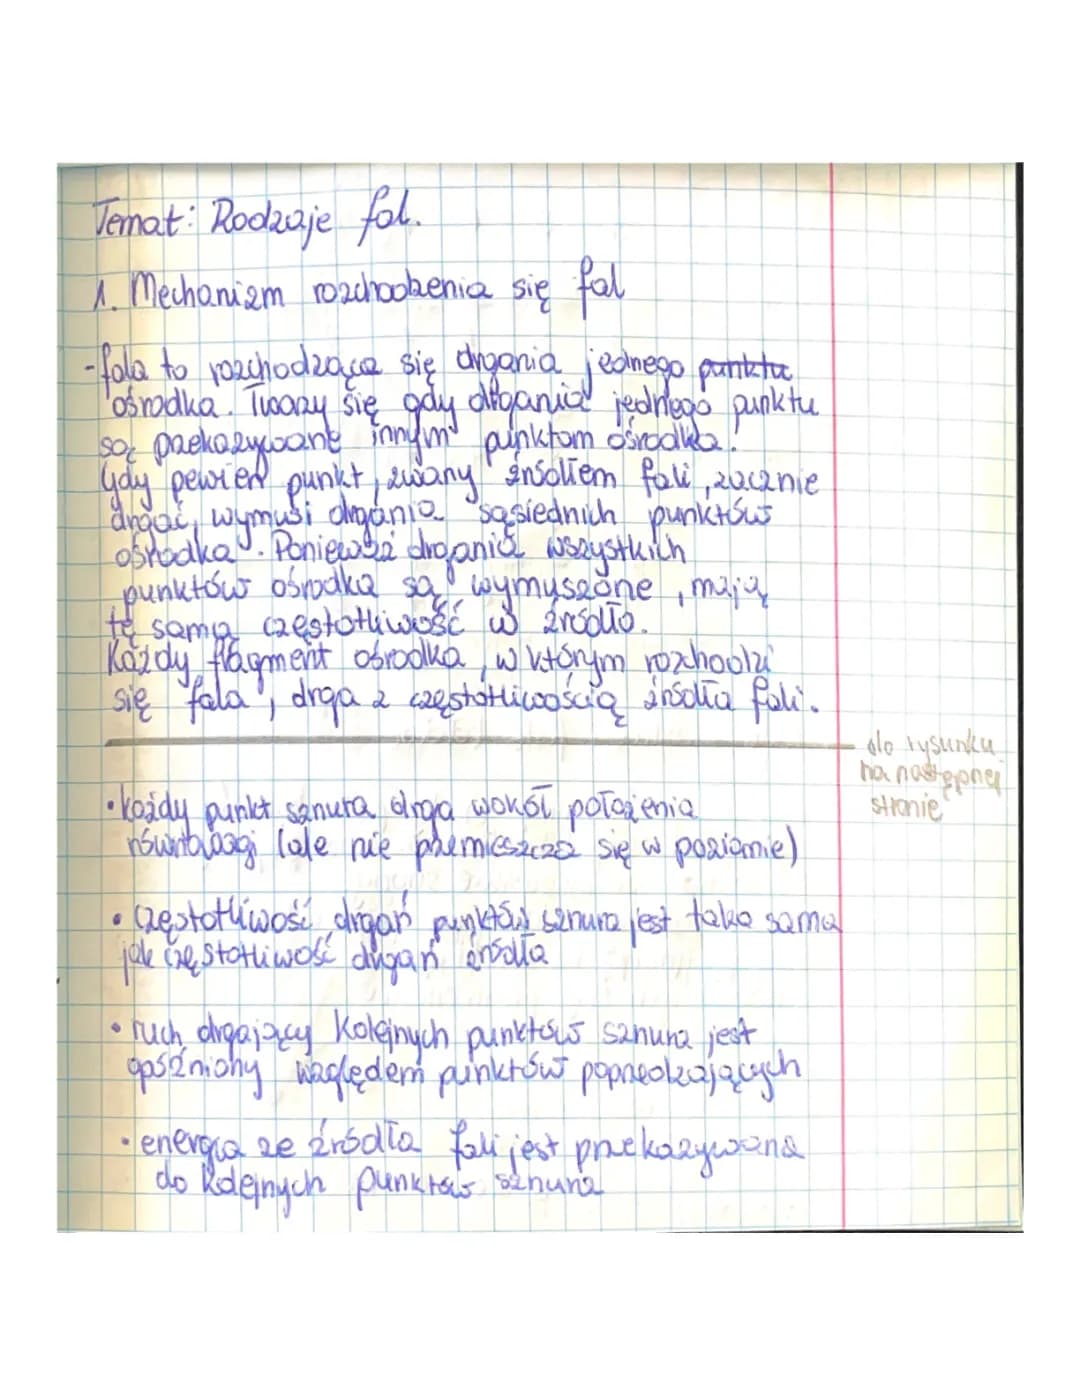 Temat: Rodzaje fal.
1. Mechanizm rozchodzenia się fal
-fala to rozchodząca się drgania jednego punktu
ośrodka. Tworzy się gdy drgania jednego punktu
są przekazywane innym punktom ośrodka.
Gdy pewien punkt, zwany źródłem fali, zacznie
drgać, wymusi drgania sąsiednich punktów
ośrodka. Ponieważ drgania wszystkich
punktów ośrodka są wymuszone, mają
tę samą częstotliwość w źródło.
Każdy fragment ośrodka, w którym rozchodzi
się fala, drga z częstotliwością źródła fali.
do rysunku
na następnej
stronie
• każdy punkt sznura drga wokół położenia
równowagi (ale nie przemieszcza się w poziomie)
• częstotliwość drgań punktów sznura jest taka sama
jak częstotliwość drgań źródła
• ruch drgający kolejnych punktów sznura jest
opóźniony względem punktów poprzedzających
• energia ze źródła fali jest przekazywana
do kolejnych punktów sznura